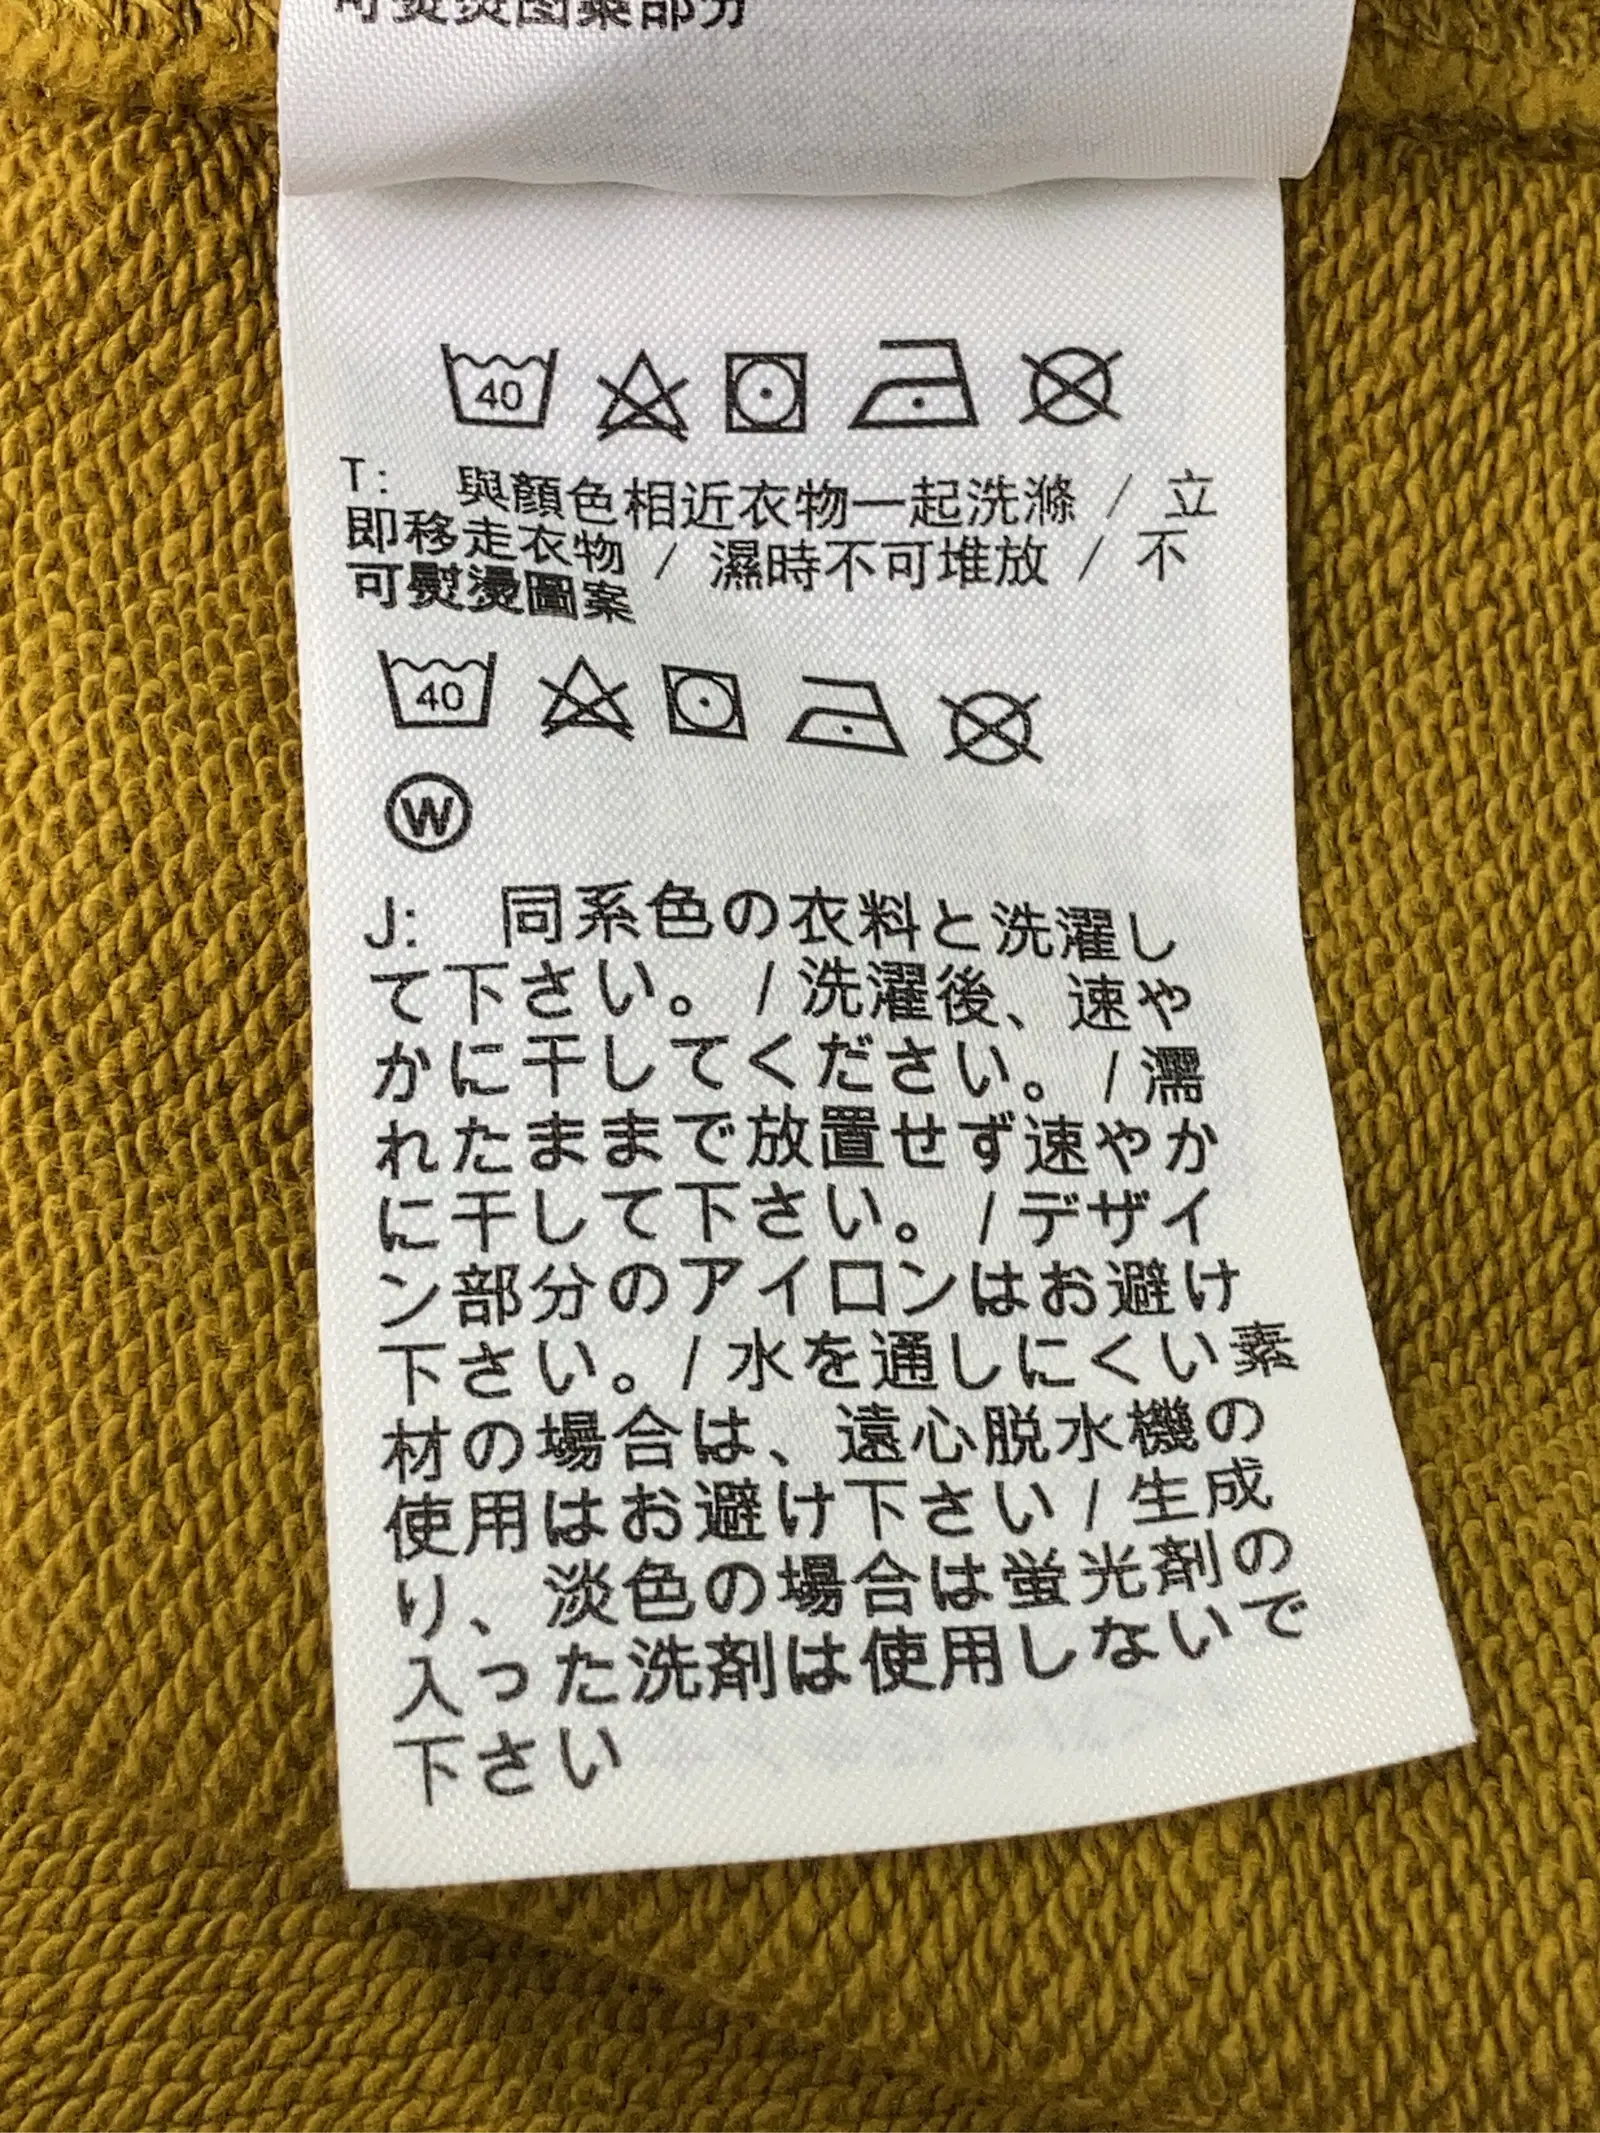 可熨燙图案部分
40
T: 與顏色相近衣物一起洗滌 / 立
即移走衣物 / 濕時不可堆放 / 不
可熨燙圖案
40
W
J: 同系色の衣料と洗濯し
て下さい。/ 洗濯後、速や
かに干してください。/ 濡
れたままで放置せず速やか
に干して下さい。/ デザイ
ン部分のアイロンはお避け
下さい。/ 水を通しにくい素
材の場合は、遠心脱水機の
使用はお避け下さい / 生成
り、淡色の場合は蛍光剤の
入った洗剤は使用しないで
下さい